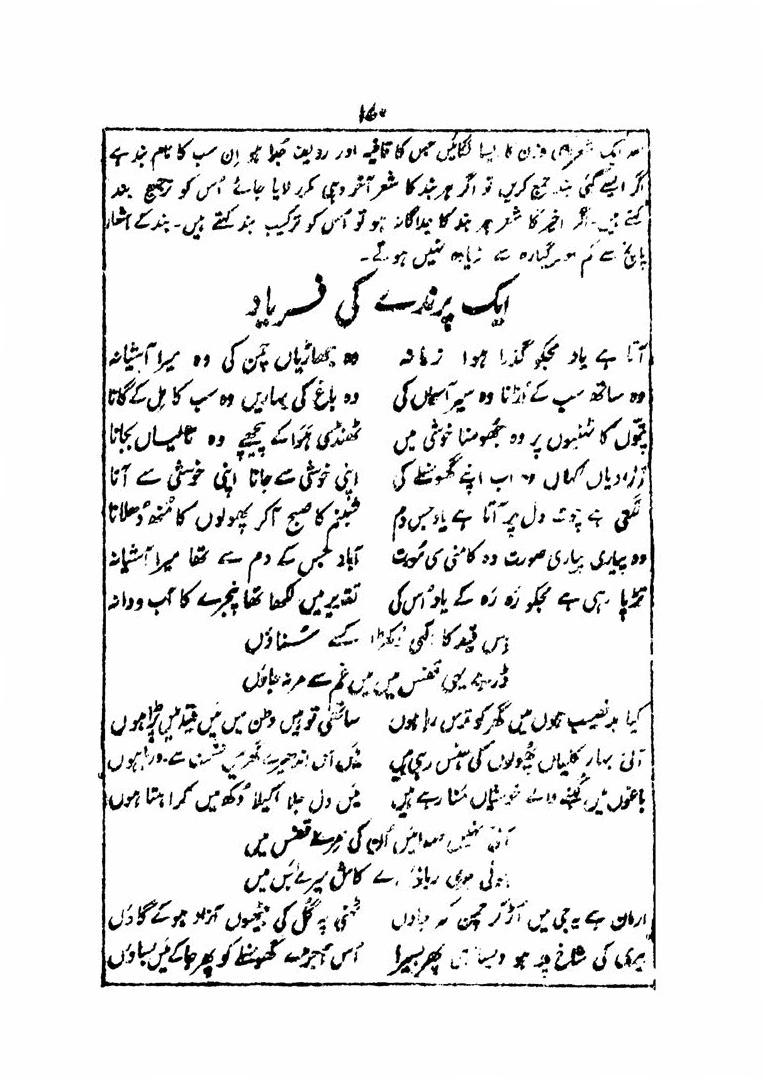 ۱۷۰
ایک شعر اسی وزن کا ایسا لگائیں جس کا قافیہ اور ردیف جدا ہو ان سب کا نام بند ہے
اگر ایسے کئی بند جمع کریں تو اگر ہر بند کا شعر آخر وہی مکرر لایا جائے اُس کو ترجیع بند
کہتے ہیں۔ اگر اخیر کا شعر ہر بند کا جداگانہ ہو تو اُس کو ترکیب بند کہتے ہیں۔ بند کے اشعار
پانچ سے کم اور گیارہ سے زیادہ نہیں ہوتے۔
ایک پرندے کی فریاد
آتا ہے یاد مجکو گذرا ہوا زمانہ وہ جھاڑیاں چمن کی وہ میرا آشیانہ
وہ ساتھ سب کے اُڑنا وہ سیر آسماں کی وہ باغ کی بہاریں وہ سب کا مل کے گانا
پتوں کا ٹہنیوں پر وہ جھومنا خوشی میں ٹھنڈی ہوا کے پیچھے وہ تالیاں بجانا
آزادیاں کہاں وہ اب اپنے گھونسلے کی اپنی خوشی سے جانا اپنی خوشی سے آنا
لگتی ہے چوٹ دل پر آتا ہے یاد جس دم شبنم کا صبح آکر پھولوں کا منھ دُھلانا
وہ پیاری پیاری صورت وہ کامنی سی مورت آباد جس کے دم سے تھا میرا آشیانہ
تڑپا رہی ہے مجکو رَہ رَہ کے یاد اُس کی تقدیر میں لکھا تھا پنجرے کا آب و دانہ
اِس قید کا الٰہی دُکھڑا کسے سُناؤں
ڈر ہے یہی قفس میں میں غم سے مر نہ جاؤں
کیا بد نصیب ہوں میں گھر کو ترس رہا ہوں ساتھی تو ہیں وطن میں میں قید میں پڑا ہوں
آئی بہار کلیاں پھولوں کی ہنس رہی ہیں میں اس اندھیرے گھر میں قسمت سے رو رہا ہوں
باغوں میں بسنے والے خوشیاں منا رہے ہیں میں دل جلا اکیلا دُکھ میں کراہتا ہوں
آتی نہیں صدائیں اُن کی مرے قفس میں
ہوتی مری رہائی اے کاش میرے بس میں
ارمان ہے یہ جی میں اُڑ کر چمن کو جاؤں ٹہنی پہ گل کی بیٹھوں آزاد ہو کے گاؤں
بیری کی شاخ پر ہو ویسا ہی پھر بسیرا اُس اُجڑے گھونسلے کو پھر جا کے میں بساؤں